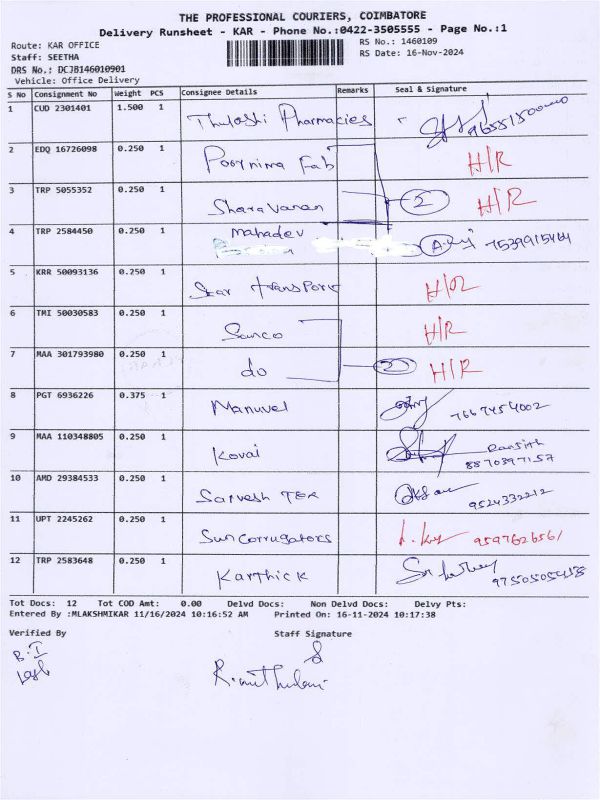 THE PROFESSIONAL COURIERS, COIMBATORE
Delivery Runsheet - KAR - Phone No.:0422-3505555 - Page No.:1
Route: KAR OFFICE
RS No.: 1460109
Staff: SEETHA
RS Date: 16-Nov-2024
DRS No.: DCJB146010901
Vehicle: Office Delivery
S No Consignment No Weight PCS Consignee Details Remarks Seal & Signature
1 CUD 2301401 1.500 1 Thulashi Pharmacies
2 EDQ 16726098 0.250 1 Poornima Fab H/R
3 TRP 5055352 0.250 1 Sharavanan 2 H/R
4 TRP 2584450 0.250 1 Mahadev 7539915484
5 KRR 50093136 0.250 1 Star transport H/R
6 TMI 50030583 0.250 1 Sanco H/R
7 MAA 301793980 0.250 1 do 2 H/R
8 PGT 6936226 0.375 1 Manuvel 7667454002
9 MAA 110348805 0.250 1 Kovai Ranjith
8870397157
10 AMD 29384533 0.250 1 Sarvesh Tex 9524332212
11 UPT 2245262 0.250 1 Sun Corrugators 9597626561
12 TRP 2583648 0.250 1 Karthick
Tot Docs: 12 Tot COD Amt: 0.00 Delvd Docs: Non Delvd Docs: Delvy Pts:
Entered By :MLAKSHMIKAR 11/16/2024 10:16:52 AM Printed On: 16-11-2024 10:17:38
Verified By Staff Signature